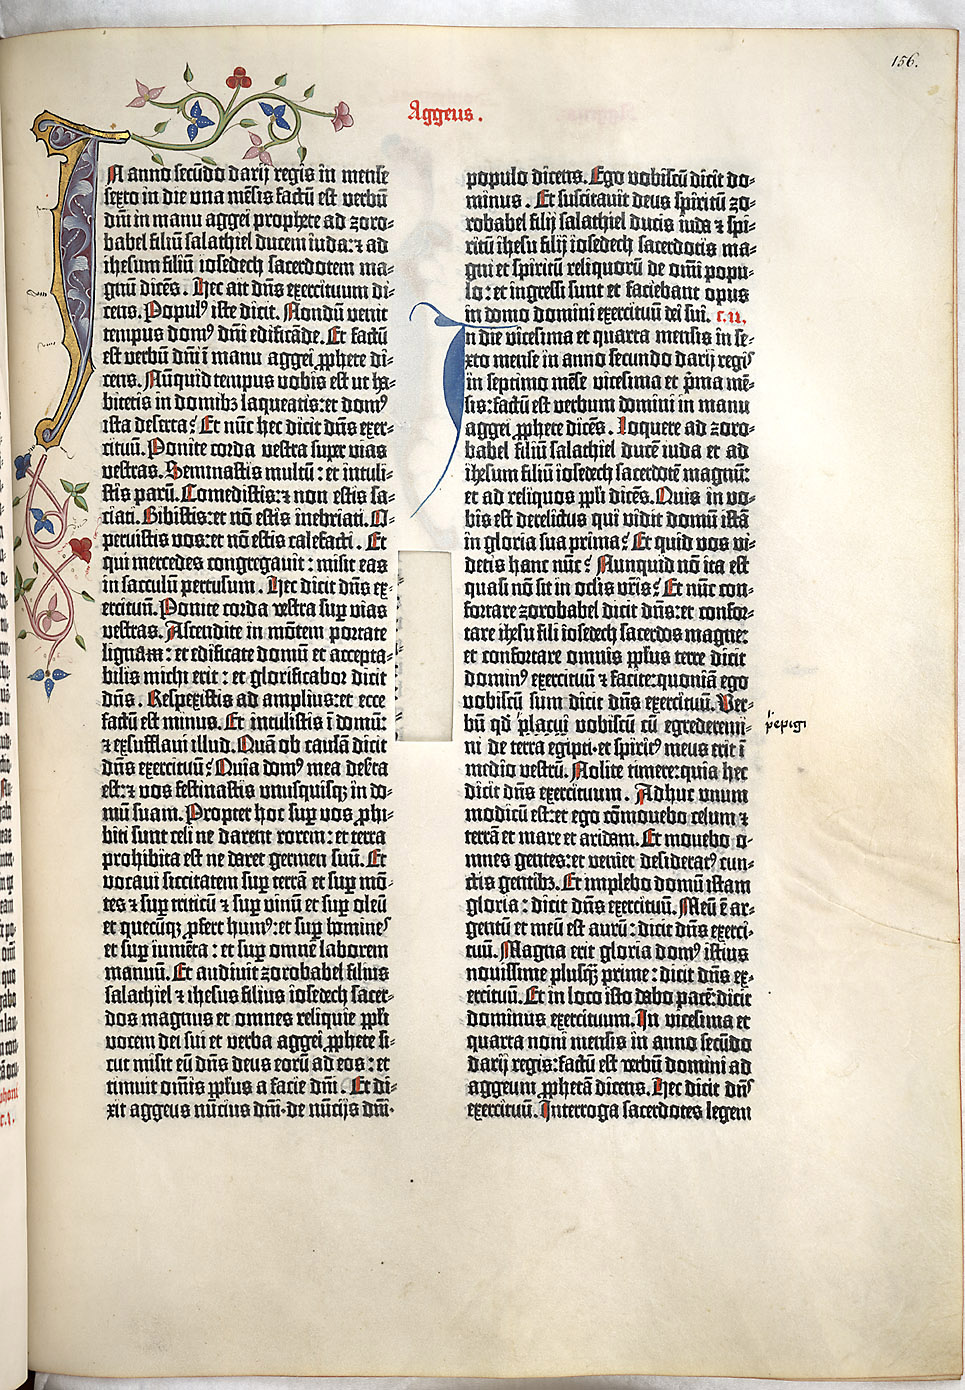 156.
Aggeus.
IN anno secūdo darij regis in mense
sexto in die una mēsis factū est verbū
dñi in manu aggei prophete ad zoro-
babel filiū salathiel ducem iuda: ⁊ ad
ihesum filiū iosedech sacerdotem ma-
gnū dicēs. Hec ait dñs exercituum di-
cens. Populꝰ iste dicit. Nondū venit
tempus domꝰ dñi edificāde. Et factū
est verbū dñi ī manu aggei ꝓphete di-
cens. Nūquid tempus vobis est ut ha-
bitetis in domibꝫ laqueatis: et domꝰ
ista deserta? Et nūc hec dicit dñs exer-
cituū. Ponite corda vestra super vias
vestras. Seminastis multū: et intuli-
stis parū. Comedistis: ⁊ non estis sa-
ciati. Bibistis: et nō estis inebriati. O-
peruistis vos: et nō estis calefacti. Et
qui mercedes congregauit: misit eas
in sacculū pertusum. Hec dicit dñs ex-
ercituū. Ponite corda vestra suꝑ vias
vestras. Ascendite in mōtem portate
lignam: et edificate domū et accepta-
bilis michi erit: et glorificabor dicit
dñs. Respexistis ad amplius: et ecce
factū est minus. Et intulistis ī domū:
⁊ exsufflaui illud. Quā ob causā dicit
dñs exercituū? Quia domꝰ mea deserta
est: ⁊ vos festinastis vnusquisqꝫ in do-
mū suam. Propter hoc suꝑ vos ꝓhi-
biti sunt celi ne darent rorem: et terra
prohibita est ne daret germen suū. Et
vocaui siccitatem suꝑ terrā et suꝑ mō-
tes ⁊ suꝑ triticū ⁊ suꝑ vinū et suꝑ oleū
et quecūqꝫ ꝓfert humꝰ: et suꝑ homines
et suꝑ iumēta: et suꝑ omnē laborem
manuū. Et audiuit zorobabel filius
salathiel ⁊ ihesus filius iosedech sacer-
dos magnus et omnes reliquie ppli
vocem dei sui et verba aggei ꝓphete si-
cut misit eū dñs deus eorū ad eos: et
timuit omīs pplus a facie dñi. Et di-
xit aggeus nūcius dñi de nūcijs dñi
populo dicens. Ego vobiscū dicit do-
minus. Et suscitauit deus spiritū zo-
robabel filij salathiel ducis iuda ⁊ spi-
ritū ihesu filij iosedech sacerdotis ma-
gni et spiritū reliquorū de omī popu-
lo: et ingressi sunt et faciebant opus
in domo domini exercituū dei sui. c.ii.
In die vicesima et quarta mensis in se-
xto mense in anno secundo darij regis
in septimo mēse vicesima et pͥma mē-
sis: factū est verbum domini in manu
aggei ꝓphete dicēs. Loquere ad zoro-
babel filiū salathiel ducē iuda et ad
ihesum filiū iosedech sacerdotē magnū:
et ad reliquos ppli dicēs. Quis in vo-
bis est derelictus qui vidit domū istā
in gloria sua prima? Et quid vos vi-
detis hanc nūc? Nunquid nō ita est
quasi nō sit in oclis vrīs? Et nūc con-
fortare zorobabel dicit dñs: et confor-
tare ihesu fili iosedech sacerdos magne:
et confortare omnis pplus terre dicit
dominꝰ exercituū ⁊ facite: quoniā ego
vobiscū sum dicit dñs exercituū. Ver-
bū qd̄ placui vobiscū cū egrederemi-
pepigi
ni de terra egipti: et spiritꝰ meus erit ī
medio vestrū. Nolite timere: quia hec
dicit dñs exercituum. Adhuc vnum
modicū est: et ego cōmouebo celum ⁊
terrā et mare et aridam. Et mouebo o-
mnes gentes: et veniet desideratꝰ cun-
ctis gentibꝫ. Et implebo domū istam
gloria: dicit dñs exercituū. Meū ē ar-
gentū et meū est aurū: dicit dñs exerci-
tuū. Magna erit gloria domꝰ istius
nouissime plusqꝫ prime: dicit dñs ex-
ercituū. Et in loco isto dabo pacē: dicit
dominus exercituum. In vicesima et
quarta noni mensis in anno secūdo
darij regis: factū est verbū domini ad
aggeum ꝓphetā dicens. Hec dicit dñs
exercituū. Interroga sacerdotes legem